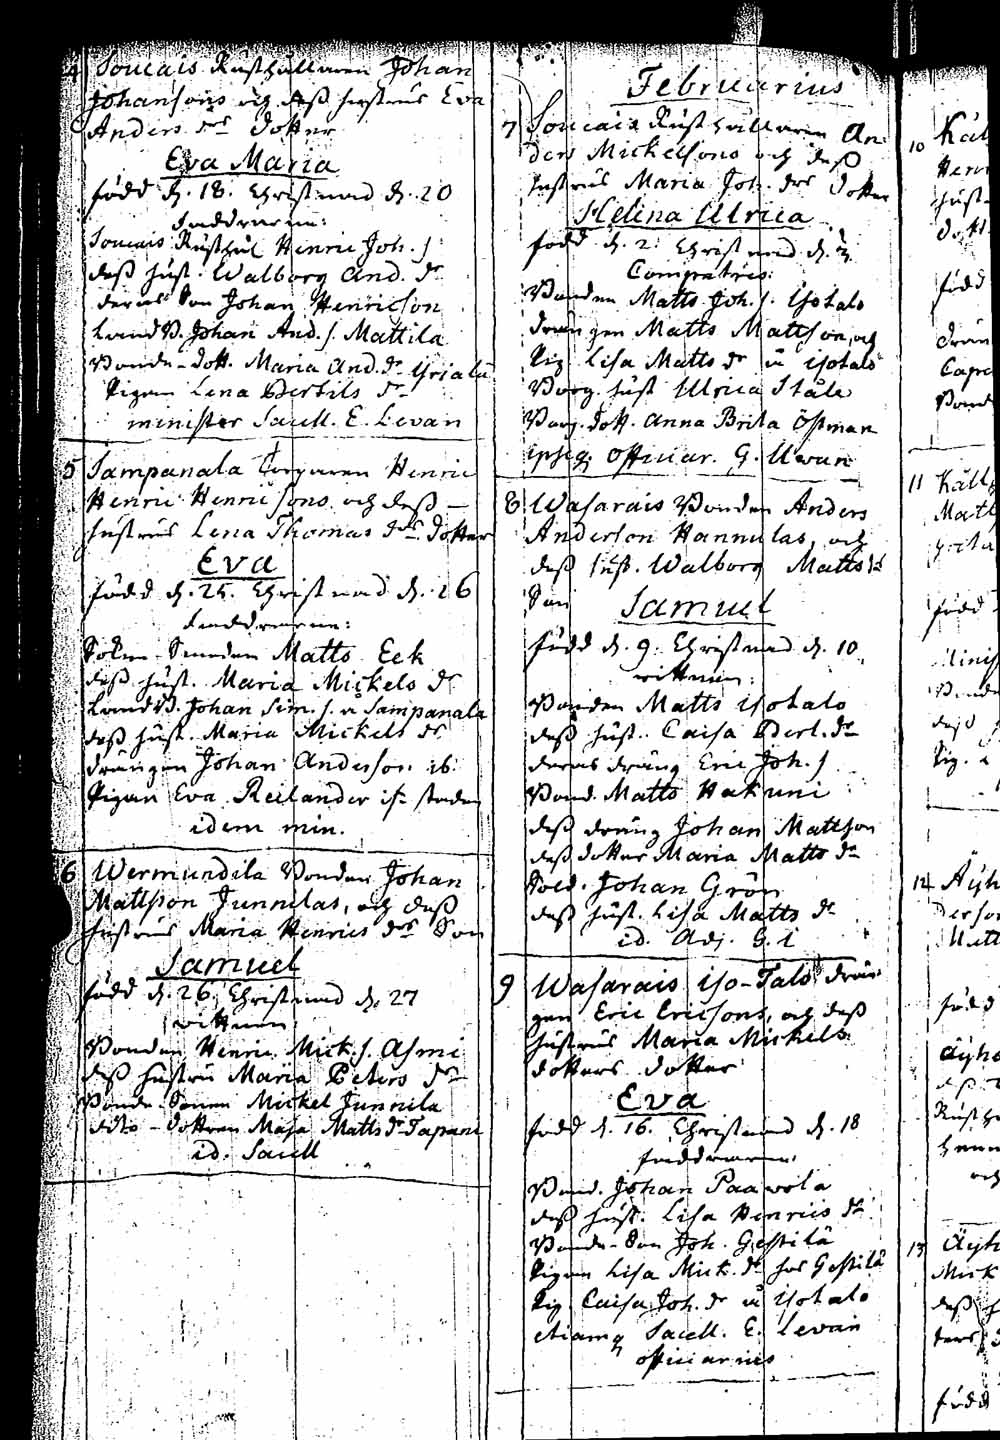 4 Soucais Rusthållaren Johan
Johansons och deß hustrus Eva
Anders drs dotter
Eva Maria
född d. 18. Christnad d. 20
faddrarne:
Soucais Rusthål Henric Joh. s.
deß hust. Walborg And. dr
deras Son Johan Henricson
Landb. Johan And. s. Mattila
Bonde-dott. Maria And. dr Yrjälä
Pigan Lena Bertils dr
minister Sacell. E. Levan
5 Sampanala Torparen Henric
Henric Henricsons och deß
hustrus Lena Thomas drs dotter
Eva
född d. 25. Christnad d. 26
faddrarne:
Sokne-Smeden Matts Eek
deß hust. Maria Mickels dr
Landb. Johan Sim. s. å Sampanala
deß hust. Maria Mickels dr
drängen Johan Anderson ib.
Pigan Eva Reilander if. staden
idem min.
6 Wermundila Bonden Johan
Mattsson Junnilas, och deß
hustrus Maria Henrics drs Son
Samuel
född d. 26. Christnad d. 27
vittnen:
Bonden Henric Mick. s. Asmi
deß hustru Maria Peters dr
Bonde-Sonen Mickel Junnila
dito-dottren Maja Matts dr Tapani
id. Sacell
Februarius
7 Soucais Rusthållaren An-
ders Mickelsons och deß
hustrus Maria Joh. drs dotter
Helena Ulrica
född d. 2. Christnad d. 3
Compatres:
Bonden Matts Joh. s. Isotalo
drängen Matts Mattson, och
Pig. Lisa Matts dr å Isotalo
Borg. hust Ulrica Ståle
Borg. dott. Anna Brita Östman
ipseq. officiar. G. Uwan
8 Wasarais Bonden Anders
Anderson Hannulas, och
deß hust. Walborg Matts dr
Son
Samuel
född d. 9. Christnad d. 10
vittnen:
Bonden Matts Isotalo
deß hust. Caisa Bert. dr
deras dräng Eric Joh. s
Bond. Matts Hakuni
deß dräng Johan Mattson
deß dotter Maria Matts dr
Sold. Johan Grön
deß hust. Lisa Matts dr
id. Adj. G. U
9 Wasarais Iso-Talo drän-
gen Eric Ericsons, och deß
hustrus Maria Mickels
dotters dotter
Eva
född d. 16. Christnad d. 18
faddrarne:
Bond. Johan Paavola
deß hust. Lisa Henrics dr
Bonde-Son Joh. Gestilä
Pigan Lisa Mick. dr hos Gestilä
Pig. Caisa Joh. dr å Isotalo
etiamq Sacell. E. Levan
officiarius
10 Käl
Henr
hust
dott
född
drän
Capt
Bond
11 Käll
Matt
född
Minist
Bonde
deß
Pig.
12 Äyh
derson
Matt
född
Äyho
Rusth
13 Äyh
Mick
deß h
ters
född